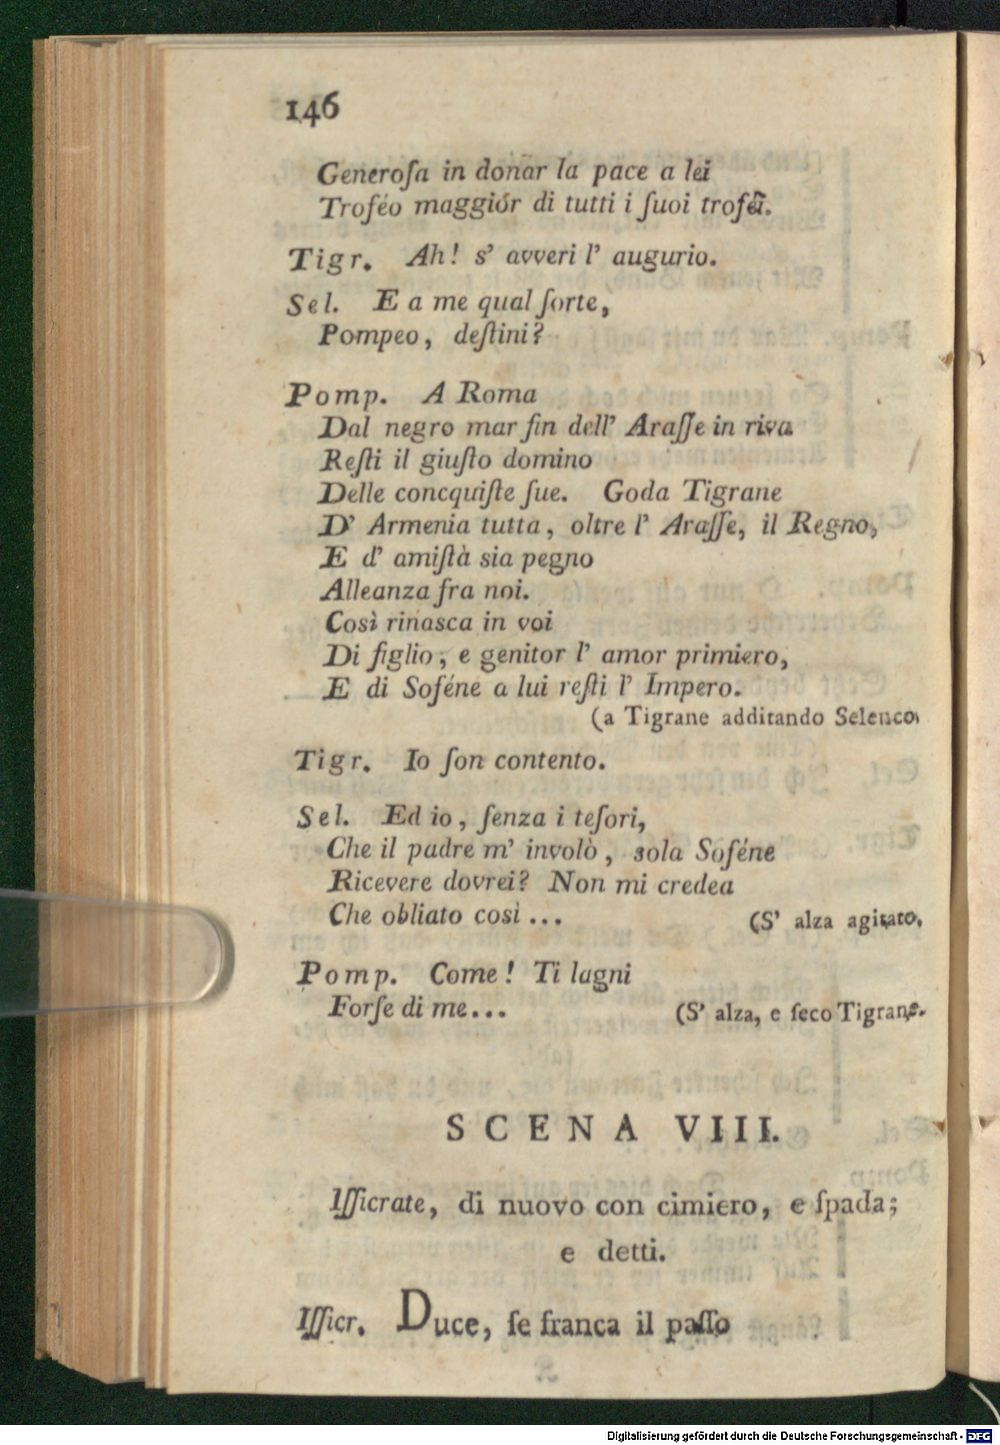 146
Generoſa in donar la pace a lei
Troféo maggiór di tutti i ſuoi troféi.
Tigr. Ah! s' avveri l' augurio.
Sel. E a me qual ſorte,
Pompeo, deſtini?
Pomp. A Roma
Dal negro mar fin dell' Araſſe in riva
Reſti il giuſto domino
Delle concquiſte ſue. Goda Tigrane
D' Armenia tutta, oltre l' Araſſe, il Regno,
E d' amiſtà sia pegno
Alleanza fra noi.
Così rinasca in voi
Di figlio, e genitor l' amor primiero,
E di Soféne a lui reſti l' Impero.
(a Tigrane additando Selenco.
Tigr. Io ſon contento.
Sel. Ed io, ſenza i teſori,
Che il padre m' involò, sola Soféne
Ricevere dovrei? Non mi credea
Che obliato così ... (S' alza agitato.
Pomp. Come! Ti lagni
Forſe di me... (S' alza, e ſeco Tigrane.
SCENA VIII.
Iſſicrate, di nuovo con cimiero, e ſpada;
e detti.
Iſſicr. Duce, ſe franca il paſſo
Digitalisierung gefördert durch die Deutsche Forschungsgemeinschaft - DFG